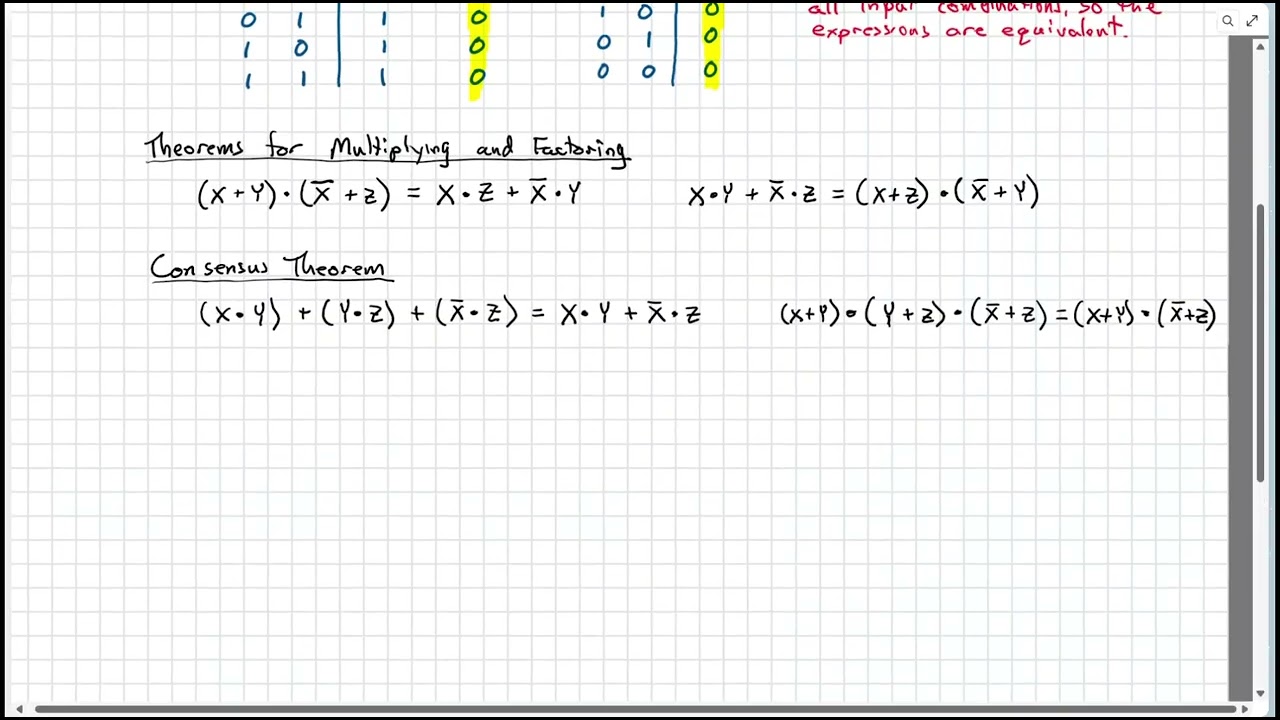 0 1 | 1 0 1 0 | 0 all input combinations, so the
1 0 | 1 0 0 1 | 0 expressions are equivalent.
1 1 | 1 0 0 0 | 0
Theorems for Multiplying and Factoring
(X + Y) · (X̅ + Z) = X · Z + X̅ · Y X · Y + X̅ · Z = (X + Z) · (X̅ + Y)
Consensus Theorem
(X · Y) + (Y · Z) + (X̅ · Z) = X · Y + X̅ · Z (X + Y) · (Y + Z) · (X̅ + Z) = (X + Y) · (X̅ + Z)